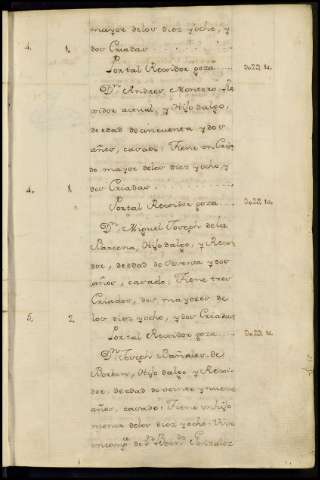 mayor de los diez y ocho, y
4. 1. dos Criadas
Por tal Rexidor goza
Dn. Andres Montero Re
xidor actual, y Hijo dalgo,
de edad de cincuenta y dos
años, casado: Tiene un Criado
mayor de los diez y ocho, y
4. 1 dos Criadas
Por tal Rexidor goza
Dn. Miguel Joseph de la
Barzena, Hijo dalgo, y Rexi
dor, de edad de treinta y dos
años, casado: Tiene tres
Criados, dos mayores de
5. 2 los diez y ocho, y dos Criadas
Por tal Rexidor goza
Dn. Joseph Bañares de
Hijo dalgo y Rexi
dor, de edad de veinte y nueve
años, casado: Tiene un hijo
menor de los diez y ocho: Vive
en comp.a de